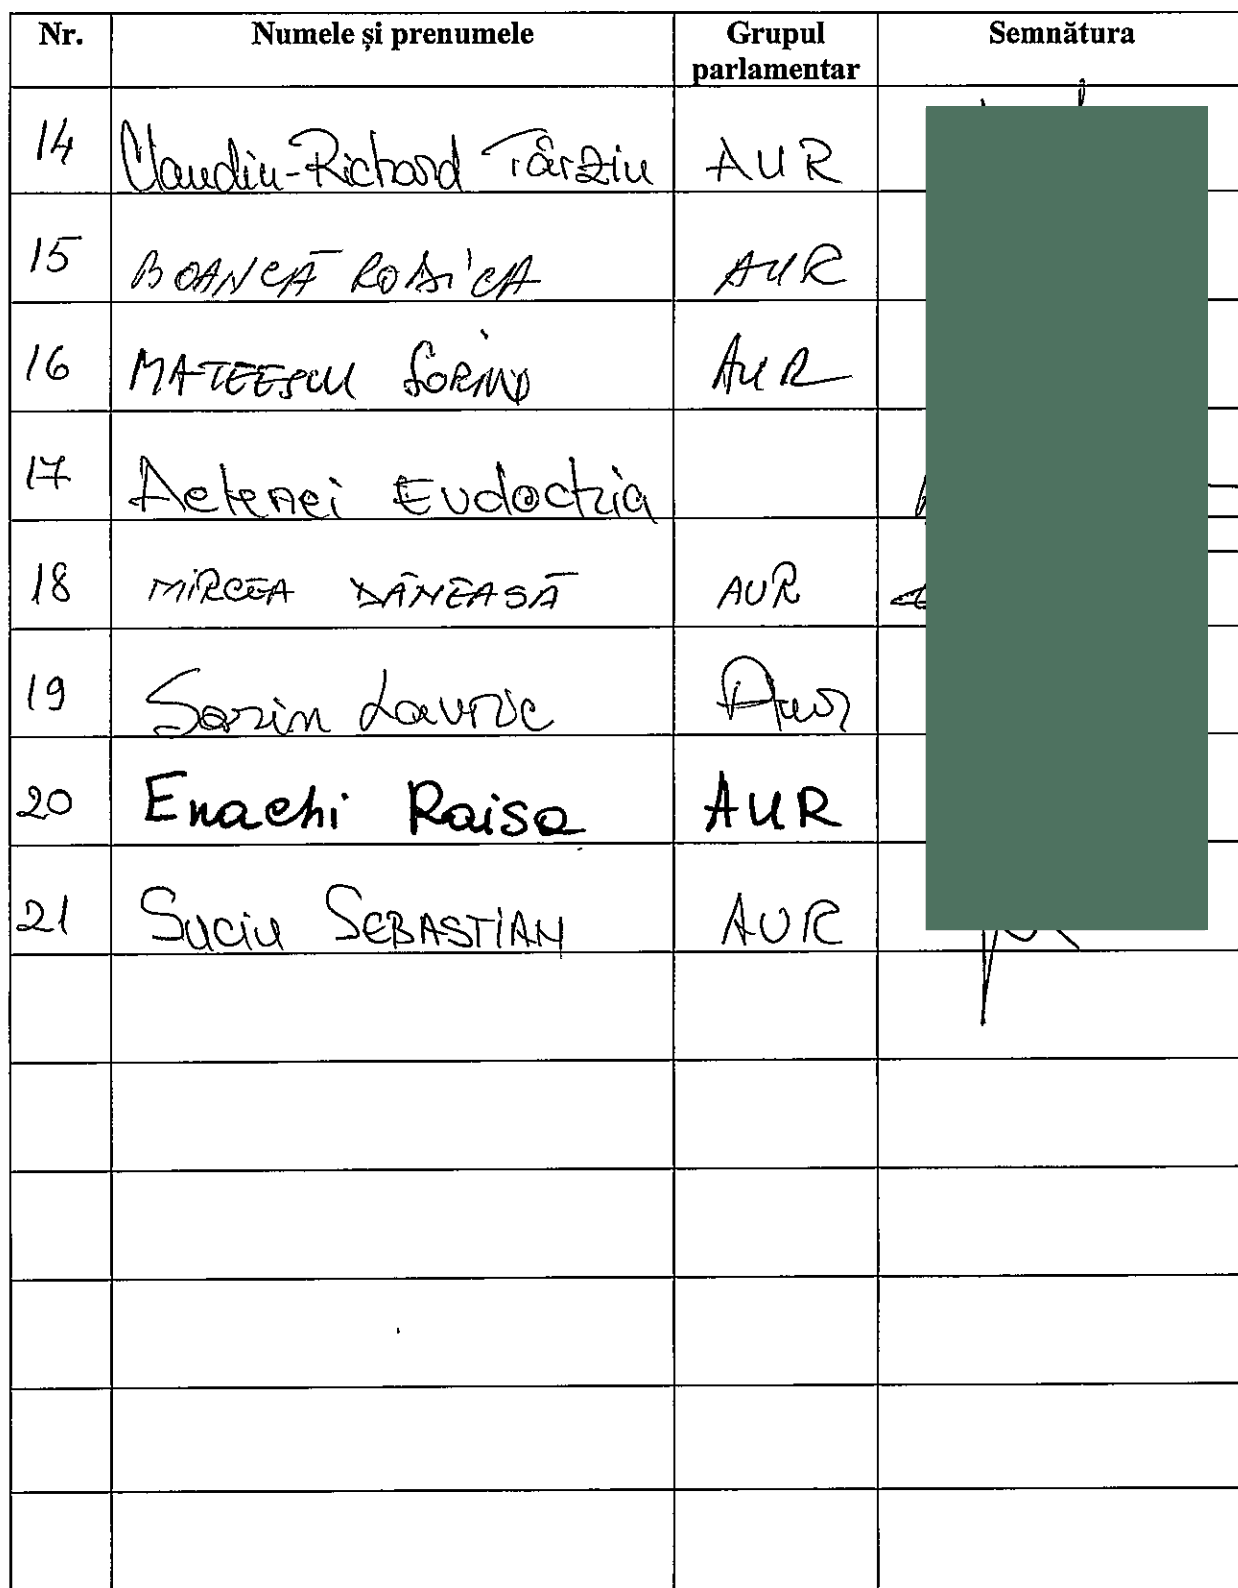 Nr. Numele și prenumele Grupul parlamentar Semnătura
14 Claudiu-Richard Târziu AUR
15 BOANCĂ RODICA AUR
16 MATEESCU SORIN AUR
17 Aelenei Evdochia
18 MIRCEA DĂNEASĂ AUR
19 Sorin Lavric Aur
20 Enachi Raisa AUR
21 SUCIU SEBASTIAN AUR